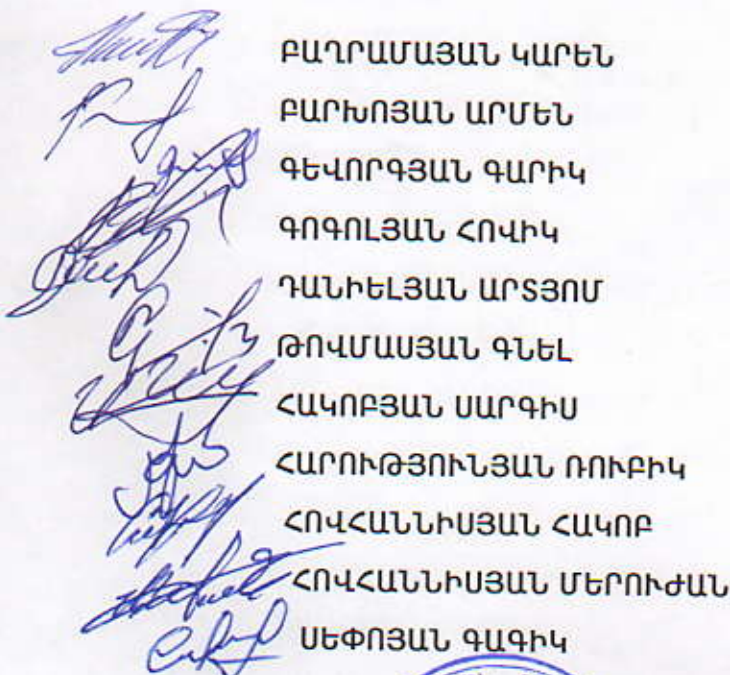 ԲԱՂՐԱՄԱՅԱՆ ԿԱՐԵՆ
ԲԱՐԽՈՅԱՆ ԱՐՄԵՆ
ԳԵՎՈՐԳՅԱՆ ԳԱՐԻԿ
ԳՈԳՈԼՅԱՆ ՀՈՎԻԿ
ԴԱՆԻԵԼՅԱՆ ԱՐՏՅՈՄ
ԹՈՎՄԱՍՅԱՆ ԳՆԵԼ
ՀԱԿՈԲՅԱՆ ՍԱՐԳԻՍ
ՀԱՐՈՒԹՅՈՒՆՅԱՆ ՌՈՒԲԻԿ
ՀՈՎՀԱՆՆԻՍՅԱՆ ՀԱԿՈԲ
ՀՈՎՀԱՆՆԻՍՅԱՆ ՄԵՐՈՒԺԱՆ
ՍԵՓՈՅԱՆ ԳԱԳԻԿ